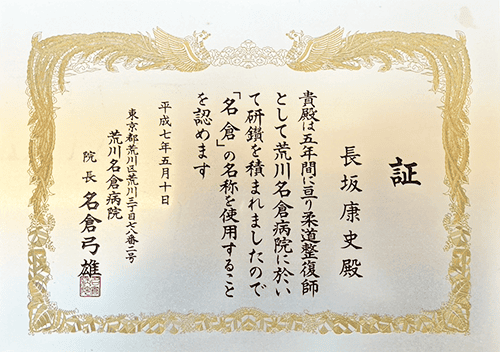 証
長坂康史殿
貴殿は五年間に亘り柔道整復師
として荒川名倉病院に於い
て研鑽を積まれましたので
「名倉」の名称を使用すること
を認めます
平成七年五月十日
東京都荒川区荒川三丁目七八番二号
荒川名倉病院
院長 名倉弓雄